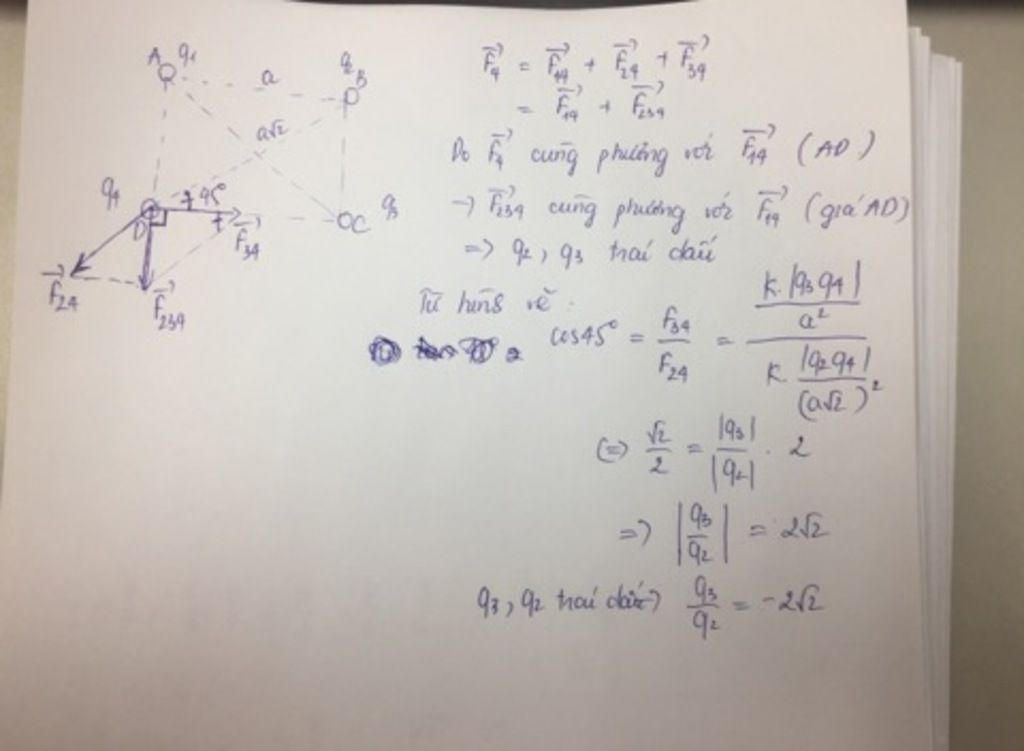 A q1
q2 B
a
a√2
q4
45°
D
C q3
F⃗34
F⃗24
F⃗234
F⃗4 = F⃗14 + F⃗24 + F⃗34
= F⃗14 + F⃗234
Do F⃗4 cùng phương với F⃗14 (AD)
→ F⃗234 cùng phương với F⃗14 (giá AD)
=> q2, q3 trái dấu
Từ hình vẽ:
cos45° = F34/F24 = (K.|q3q4|/a²)/(K.|q2q4|/(a√2)²)
(=) √2/2 = |q3|/|q2| . 2
=> |q3/q2| = 2√2
q3, q2 trái dấu → q3/q2 = -2√2